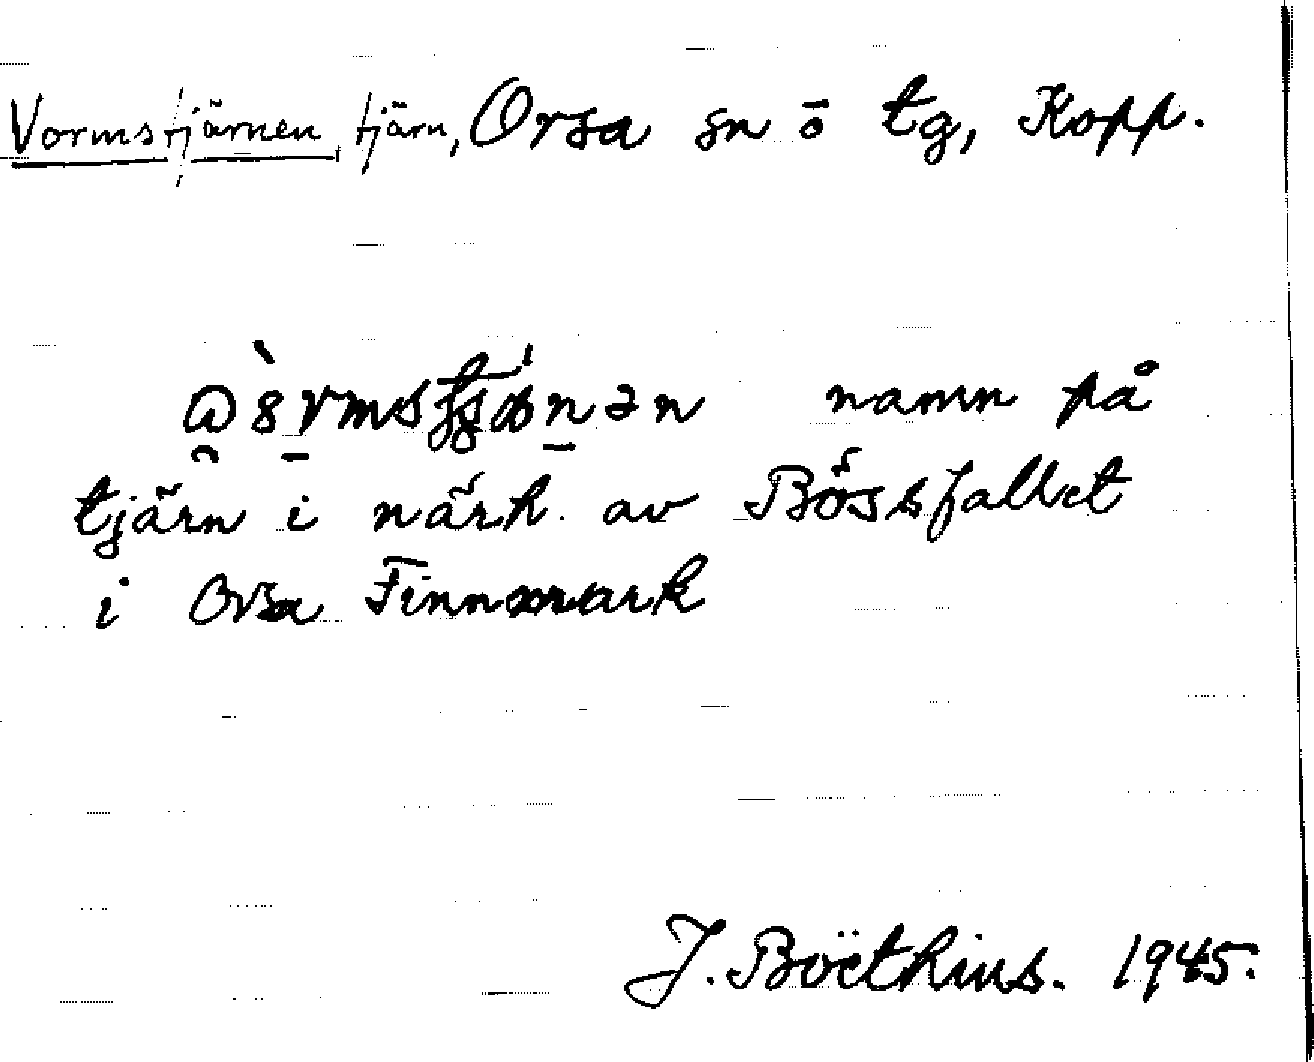 Vormstjärnen, tjärn, Orsa sn o tg, Kopp.
namn på
tjärn i närh. av Bössfallet
i Orsa Finnmark
J. Boëthius. 1945.